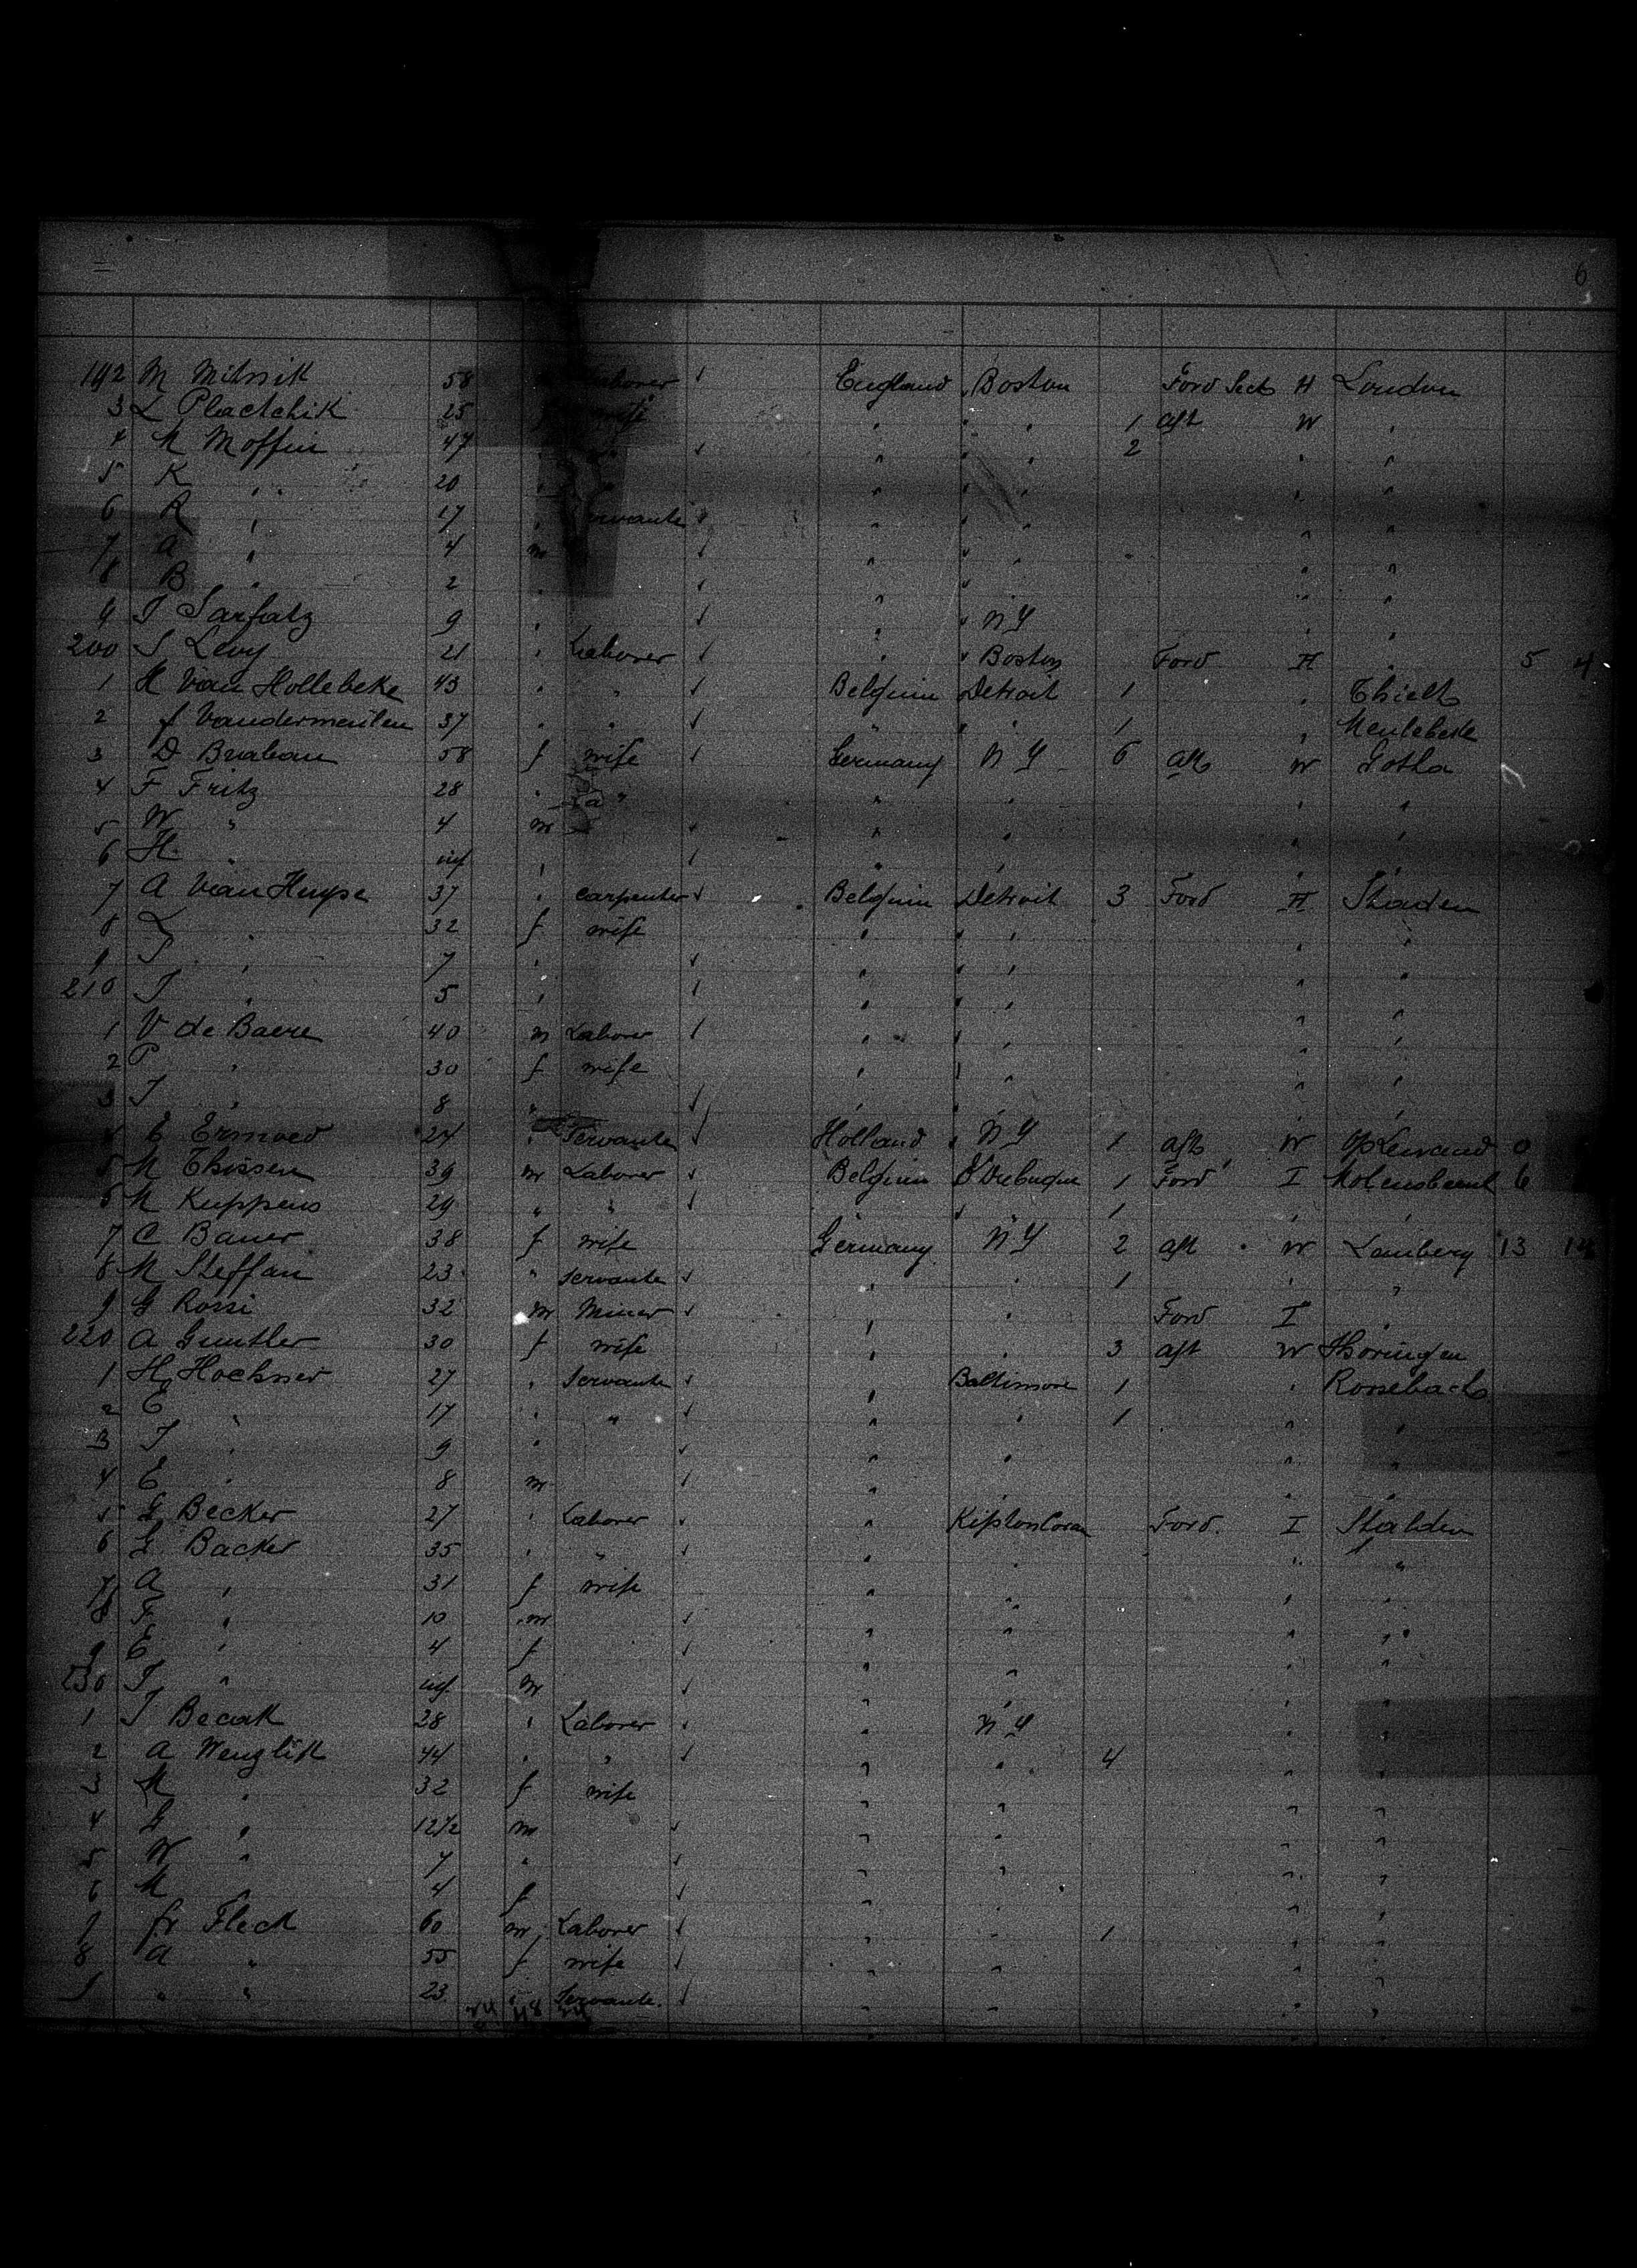 6
192 M Mitnik 58 Laborer England Boston Ford Sect H London
3 L Plactchik 25 f wife " " " 1 aft W "
4 M Moffin 47 " " " " " 2 " "
5 K " 20 " " " " " "
6 R " 17 " Servante " " " " "
7 A " 4 m " " " "
8 B " 2 " " " " "
9 J Sarfatz 9 " " N Y " "
200 S Levy 21 " Laborer " Boston Ford H " 5 4
1 H Van Hollebeke 43 " " Belgium Detroit 1 " Thielt
2 f Vandermeulen 37 " " " " 1 " Meulebeke
3 D Brabau 58 f wife Germany N Y 6 aft W Gotha
4 F Fritz 28 " " " " " "
5 W " 4 m " " " "
6 H " inf " " " " "
7 A Van Huyse 37 " carpenter Belgium Detroit 3 Ford H Staden
8 L " 32 f wife " " " "
9 P " 7 " " " " "
210 J " 5 " " " " "
1 V de Baere 40 m Laborer " " " "
2 P " 30 f wife " " " "
3 J " 8 " " " " "
4 E Ermoed 24 " Servante Holland N Y 1 aft W 0
5 M Thissen 39 m Laborer Belgium Dubuque 1 Ford I Molensbeent 6
6 M Kuppens 29 " " " " 1 " "
7 C Bauer 38 f wife Germany N Y 2 aft W Lamberg 13 14
8 M Steffan 23 " servante " " 1 " "
9 G Rossi 32 m Miner " " Ford I "
220 A Guntler 30 f wife " " 3 aft W Thoringen
1 H Hochner 27 " Servante " Baltimore 1 " Rossebach
2 E " 17 " " " " 1 " "
3 J " 9 " " " " "
4 E " 8 m " " " "
5 G Becker 27 " Laborer " Kipton Ford I Stalden
6 G Backer 35 " " " " " "
7 A " 31 f wife " " " "
8 F " 10 m " " " "
9 E " 4 f " " " "
230 J " inf m " " " "
1 J Becak 28 " Laborer " N Y " "
2 A Wenzlik 44 " " " " 4 " "
3 M " 32 f wife " " " "
4 G " 12 1/2 m " " " "
5 W " 7 " " " " "
6 M " 4 f " " " "
7 fr Fleck 60 m Laborer " " 1 " "
8 A " 55 f wife " " " "
9 " " 23 " Servante " " " "